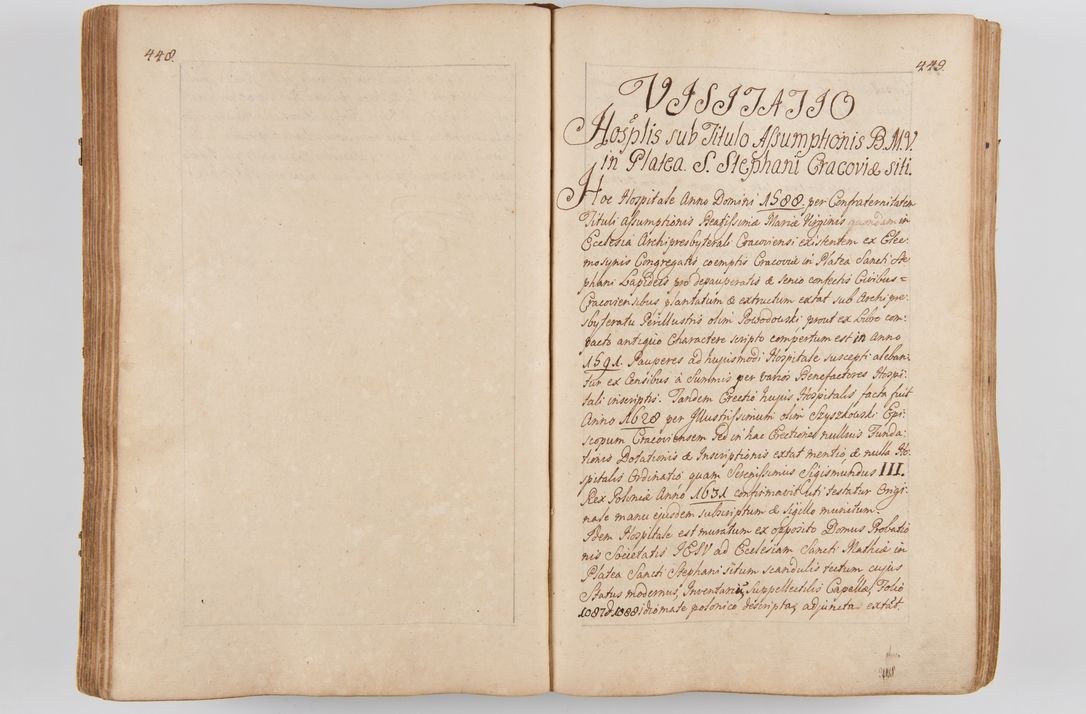 448.
449.
VISITATIO
Hosplis sub Titulo Assumptionis B.M.V.
in Platea S. Stephani Cracoviæ siti.
Hoc Hospitale Anno Domini 1588. per Confraternitatem
Tituli Assumptionis Beatissimæ Mariæ Virginis quondam in
Ecclesia Archipresbyterali Cracoviensi existentem ex Elee-
mosynis Congregatis coemptis Cracoviæ in Platea Sancti Ste
phani Lapideis pro depauperatis & senio confectis Civibus=
Cracoviensibus plantatum & extructum extat sub Archipre-
sbyteratu Perillustris olim Powodowski prout ex Libro com-
pacto antiquo Charactere scripto compertum est in Anno
1591. Pauperes ad hujusmodi Hospitale suscepti aleban-
tur ex Censibus à Summis per varios Benefactores Hospi-
tali inscriptis. Tandem Erectio hujus Hospitalis facta fuit
Anno 1628 per Illustrissimum olim Szyszkowski Epi-
scopum Cracoviensem sed in hac Erectione nullius Funda-
tionis Dotationis & Inscriptionis extat mentio & nulla Ho-
spitalis Ordinatio quam Serenissimus Sigismundus III.
Rex Poloniæ Anno 1631 confirmavit uti testatur Origi-
nale manu ejusdem subscriptum & sigillo munitum.
Idem Hospitale est muratum ex opposito Domus Probatio
nis Societatis IESV ad Ecclesiam Sancti Mathiæ in
Platea Sancti Stephani situm scandulis tectum cujus
Status modernus, Inventaria, Suppellectilis Capellæ, Folio
1087 & 1088 idiomate polonico descripta, adjuncta extat.